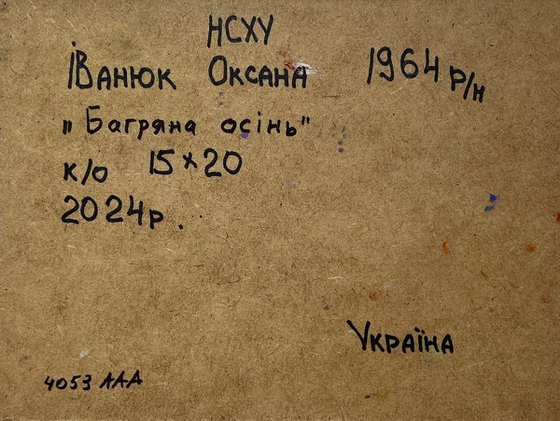 НСХУ
Іванюк Оксана 1964 р/н
„Багряна осінь"
к/о 15×20
2024р.
Україна
4053 ААА